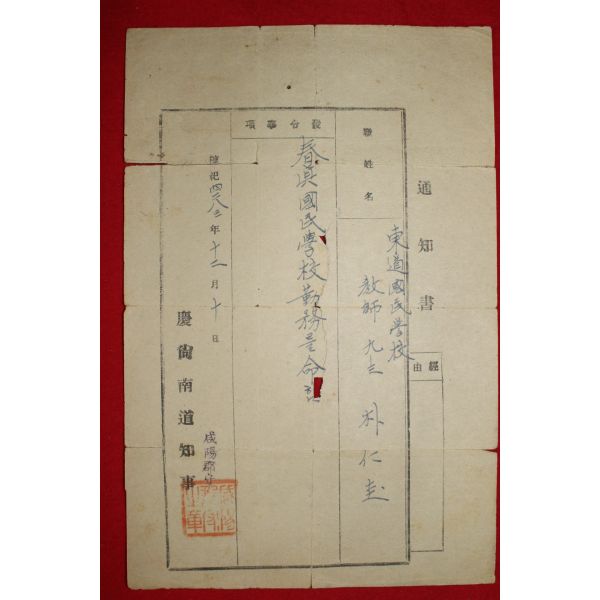 通知書
經由
職姓名
東道國民學校
教師 九三 朴仁圭
發令事項
春眞國民學校勤務을 命함
檀紀 四二八三 年 十二 月 十 日
慶尙南道知事
咸陽郡守